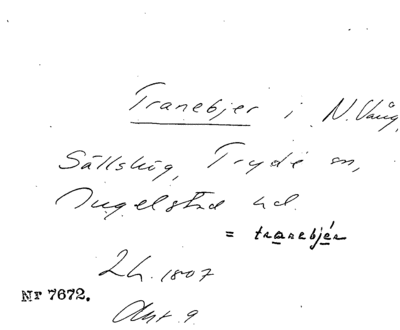 Tranebjer i N. Vång,
Sällshög, Tryde sn,
Ingelstad hd.
= tranebjér
Lh. 1807
Nr 7672.
Akt 9